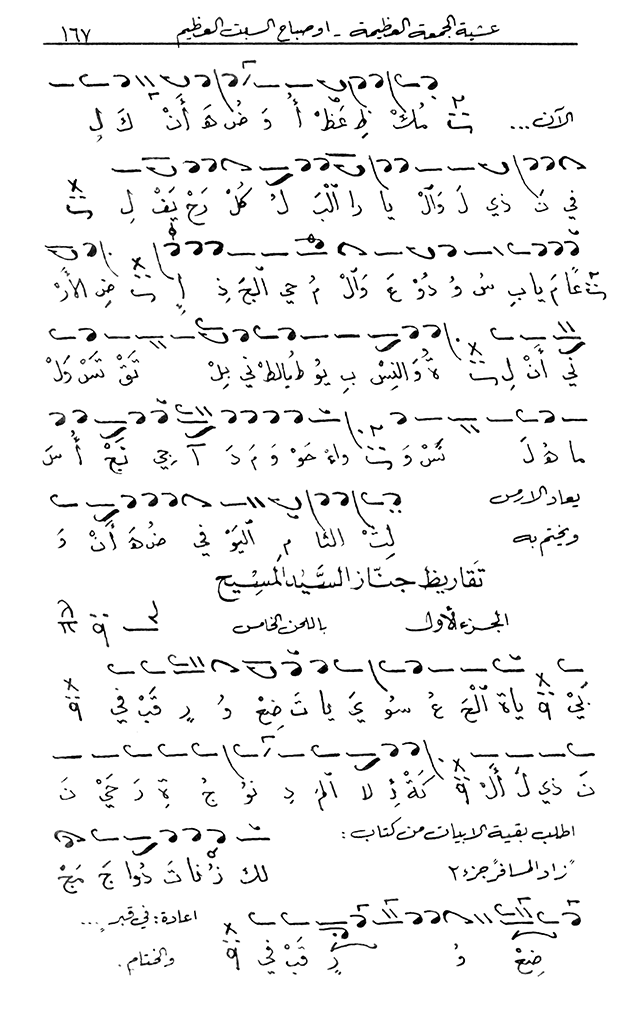 عشية الجمعة العظيمة - او صباح السبت العظيم ١٦٧
الآن ... مُكْ ظِ عَظْ أُ وَ ضُ هَ أَنْ كَ لِ
في نَ ذي لَ وَالْ يا را الْبَ لُ كُلْ رَحْ يَفْ لِ
عًا مَ يا بِ سُ وُ دُوْ عَ وَالْ مُ حِي الجَ ذِ إِ ضِ الأَرْ
ني أَنْ لِ ةُ وَالنِسْ بِ يُو طُ بالطْ ني بِلْ تَقْ تَسْ دَلْ
ما هُ لَ نَسْ وَ واءْ حَوْ وَ مَ دَ آ جِي نَجْ أُ سَ
يعاد الارمس
ويختم به لِتْ الثا مِ اليَوْ في ضُ هَ أَنْ وَ
تقاريظ جنّاز السيّد المسيح
الجزء الأول باللحن الخامس
بَيْ ياةَ الْحَ عُ سو يَ يا تَ ضِعْ وُ رِ قَبْ في
نَ ذي لَ أَلْ كَةْ ئِ لا الْمَ دِ نوْ جُ ةِ رَ حَيْ نَ
اطلب بقية الابيات من كتاب :
"زاد المسافر" جزء ٢ لك زْنا تَ دُوا جَ مَجْ
اعادة : في قبرٍ ...
والختام . في قَبْ رٍ وُ ضِعْ